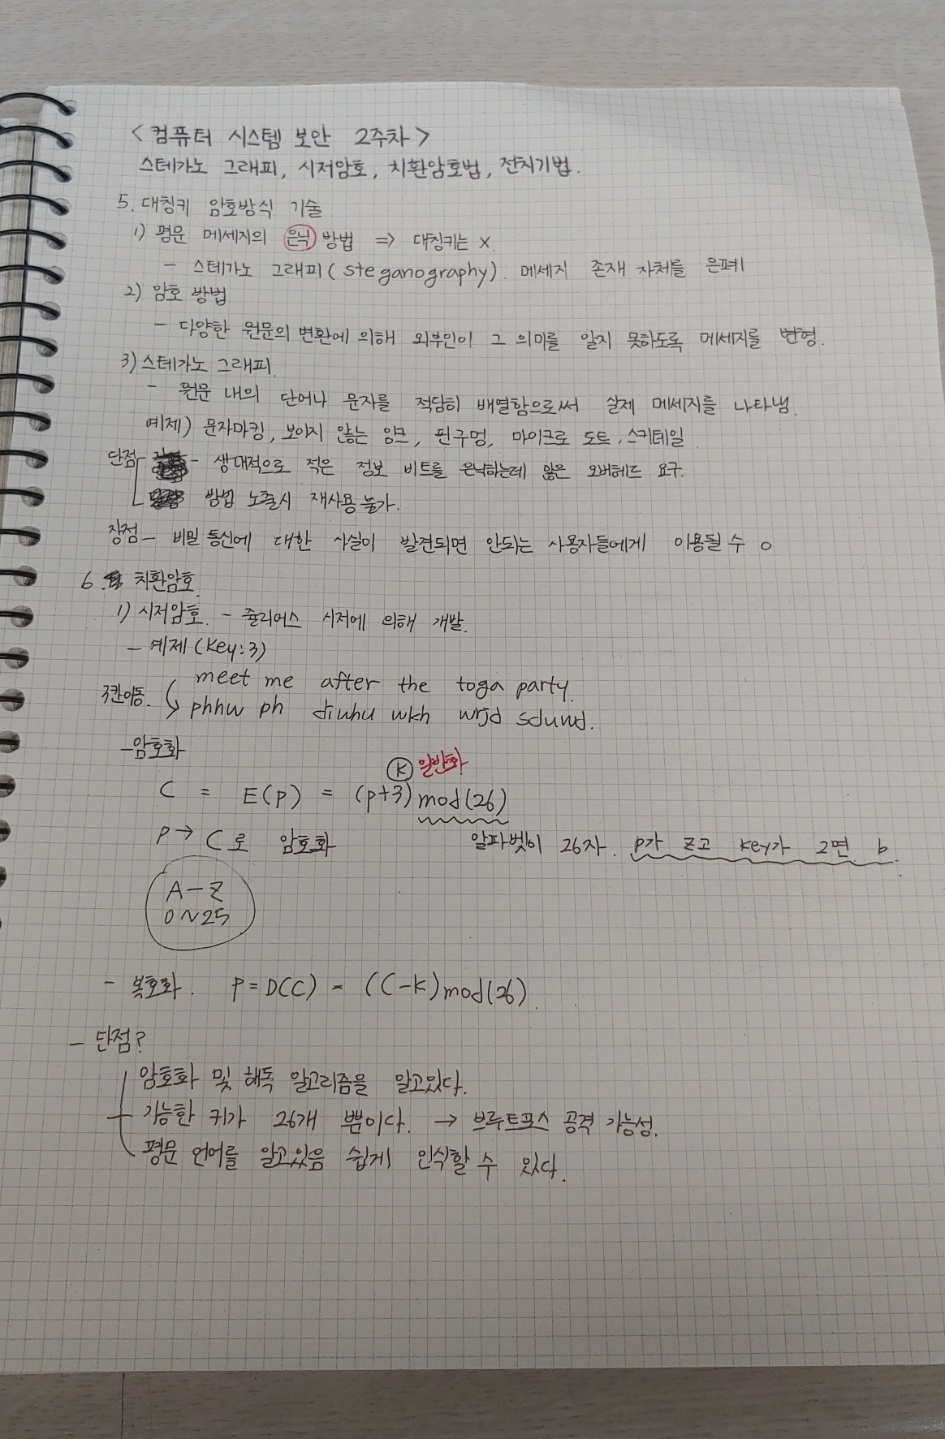 <컴퓨터 시스템 보안 2주차>
스테가노 그래피, 시저암호, 치환암호법, 전치기법.
5. 대칭키 암호방식 기술
1) 평문 메세지의 은닉 방법 => 대칭키는 x
- 스테가노 그래피(steganography). 메세지 존재 자체를 은폐
2) 암호 방법
- 다양한 원문의 변환에 의해 외부인이 그 의미를 알지 못하도록 메세지를 변형.
3) 스테가노 그래피
- 원문 내의 단어나 문자를 적당히 배열함으로써 실제 메세지를 나타냄
예제) 문자마킹, 보이지 않는 잉크, 핀구멍, 마이크로 도트, 스키테일
단점 - 상대적으로 적은 정보 비트를 은닉하는데 많은 오버헤드 요구.
방법 노출시 재사용 불가.
장점 - 비밀 통신에 대한 사실이 발견되면 안되는 사용자들에게 이용될 수 o
6. 치환암호
1) 시저암호. - 쥴리어스 시저에 의해 개발.
- 예제 (key:3)
meet me after the toga party.
3칸이동. phhw ph diwhu wkh wrjd sduwd.
- 암호화
K 일반화
C = E(p) = (p+3) mod(26)
P → C로 암호화 알파벳이 26자. p가 z고 key가 2면 b.
A-Z
0~25
- 복호화. P=D(C) = (C-K)mod(26).
- 단점?
암호화 및 해독 알고리즘을 알고있다.
가능한 키가 26개 뿐이다. → 브루트포스 공격 가능성.
평문 언어를 알고있음 쉽게 인식할 수 있다.